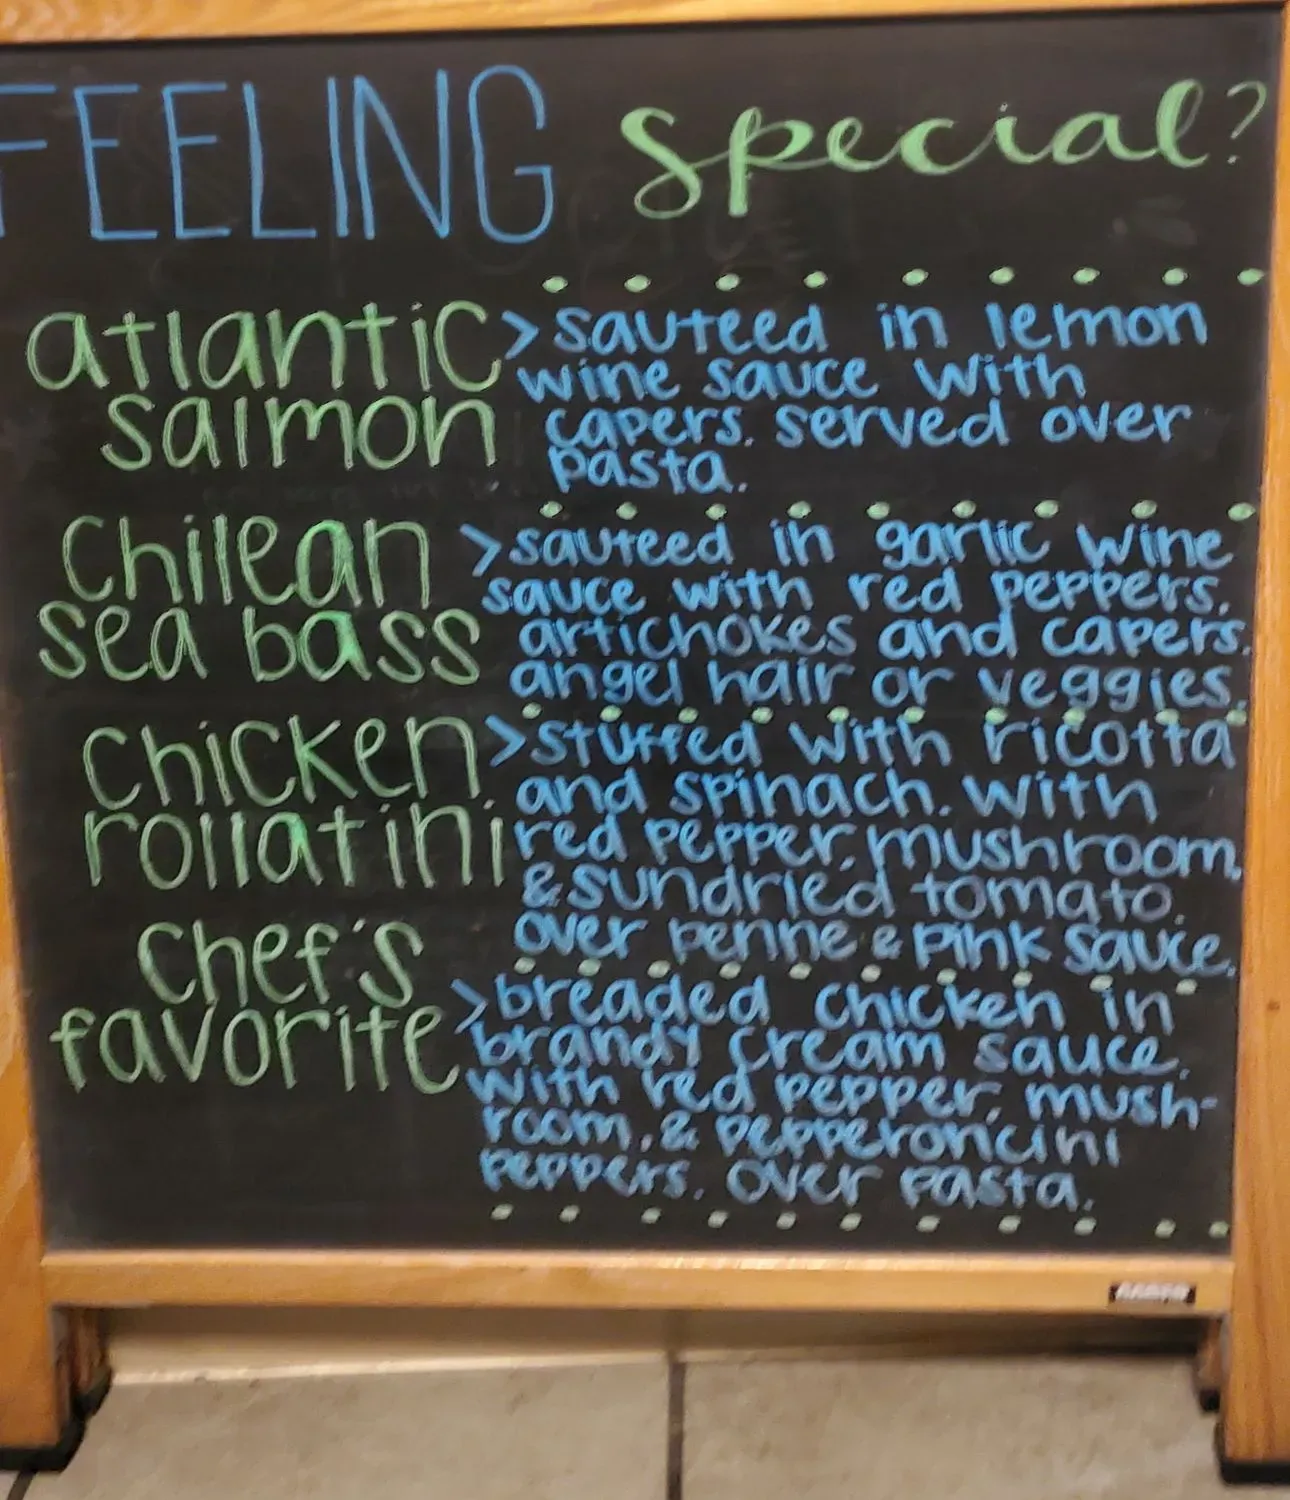 FEELING special?
atlantic
salmon
> sauteed in lemon
wine sauce with
capers. served over
pasta.
chilean
sea bass
> sauteed in garlic wine
sauce with red peppers,
artichokes and capers.
angel hair or veggies.
chicken
rollatini
> stuffed with ricotta
and spinach. with
red pepper, mushroom,
& sundried tomato.
over penne & pink sauce.
chef's
favorite
> breaded chicken in
brandy cream sauce.
with red pepper, mush-
room, & pepperoncini
peppers. over pasta.